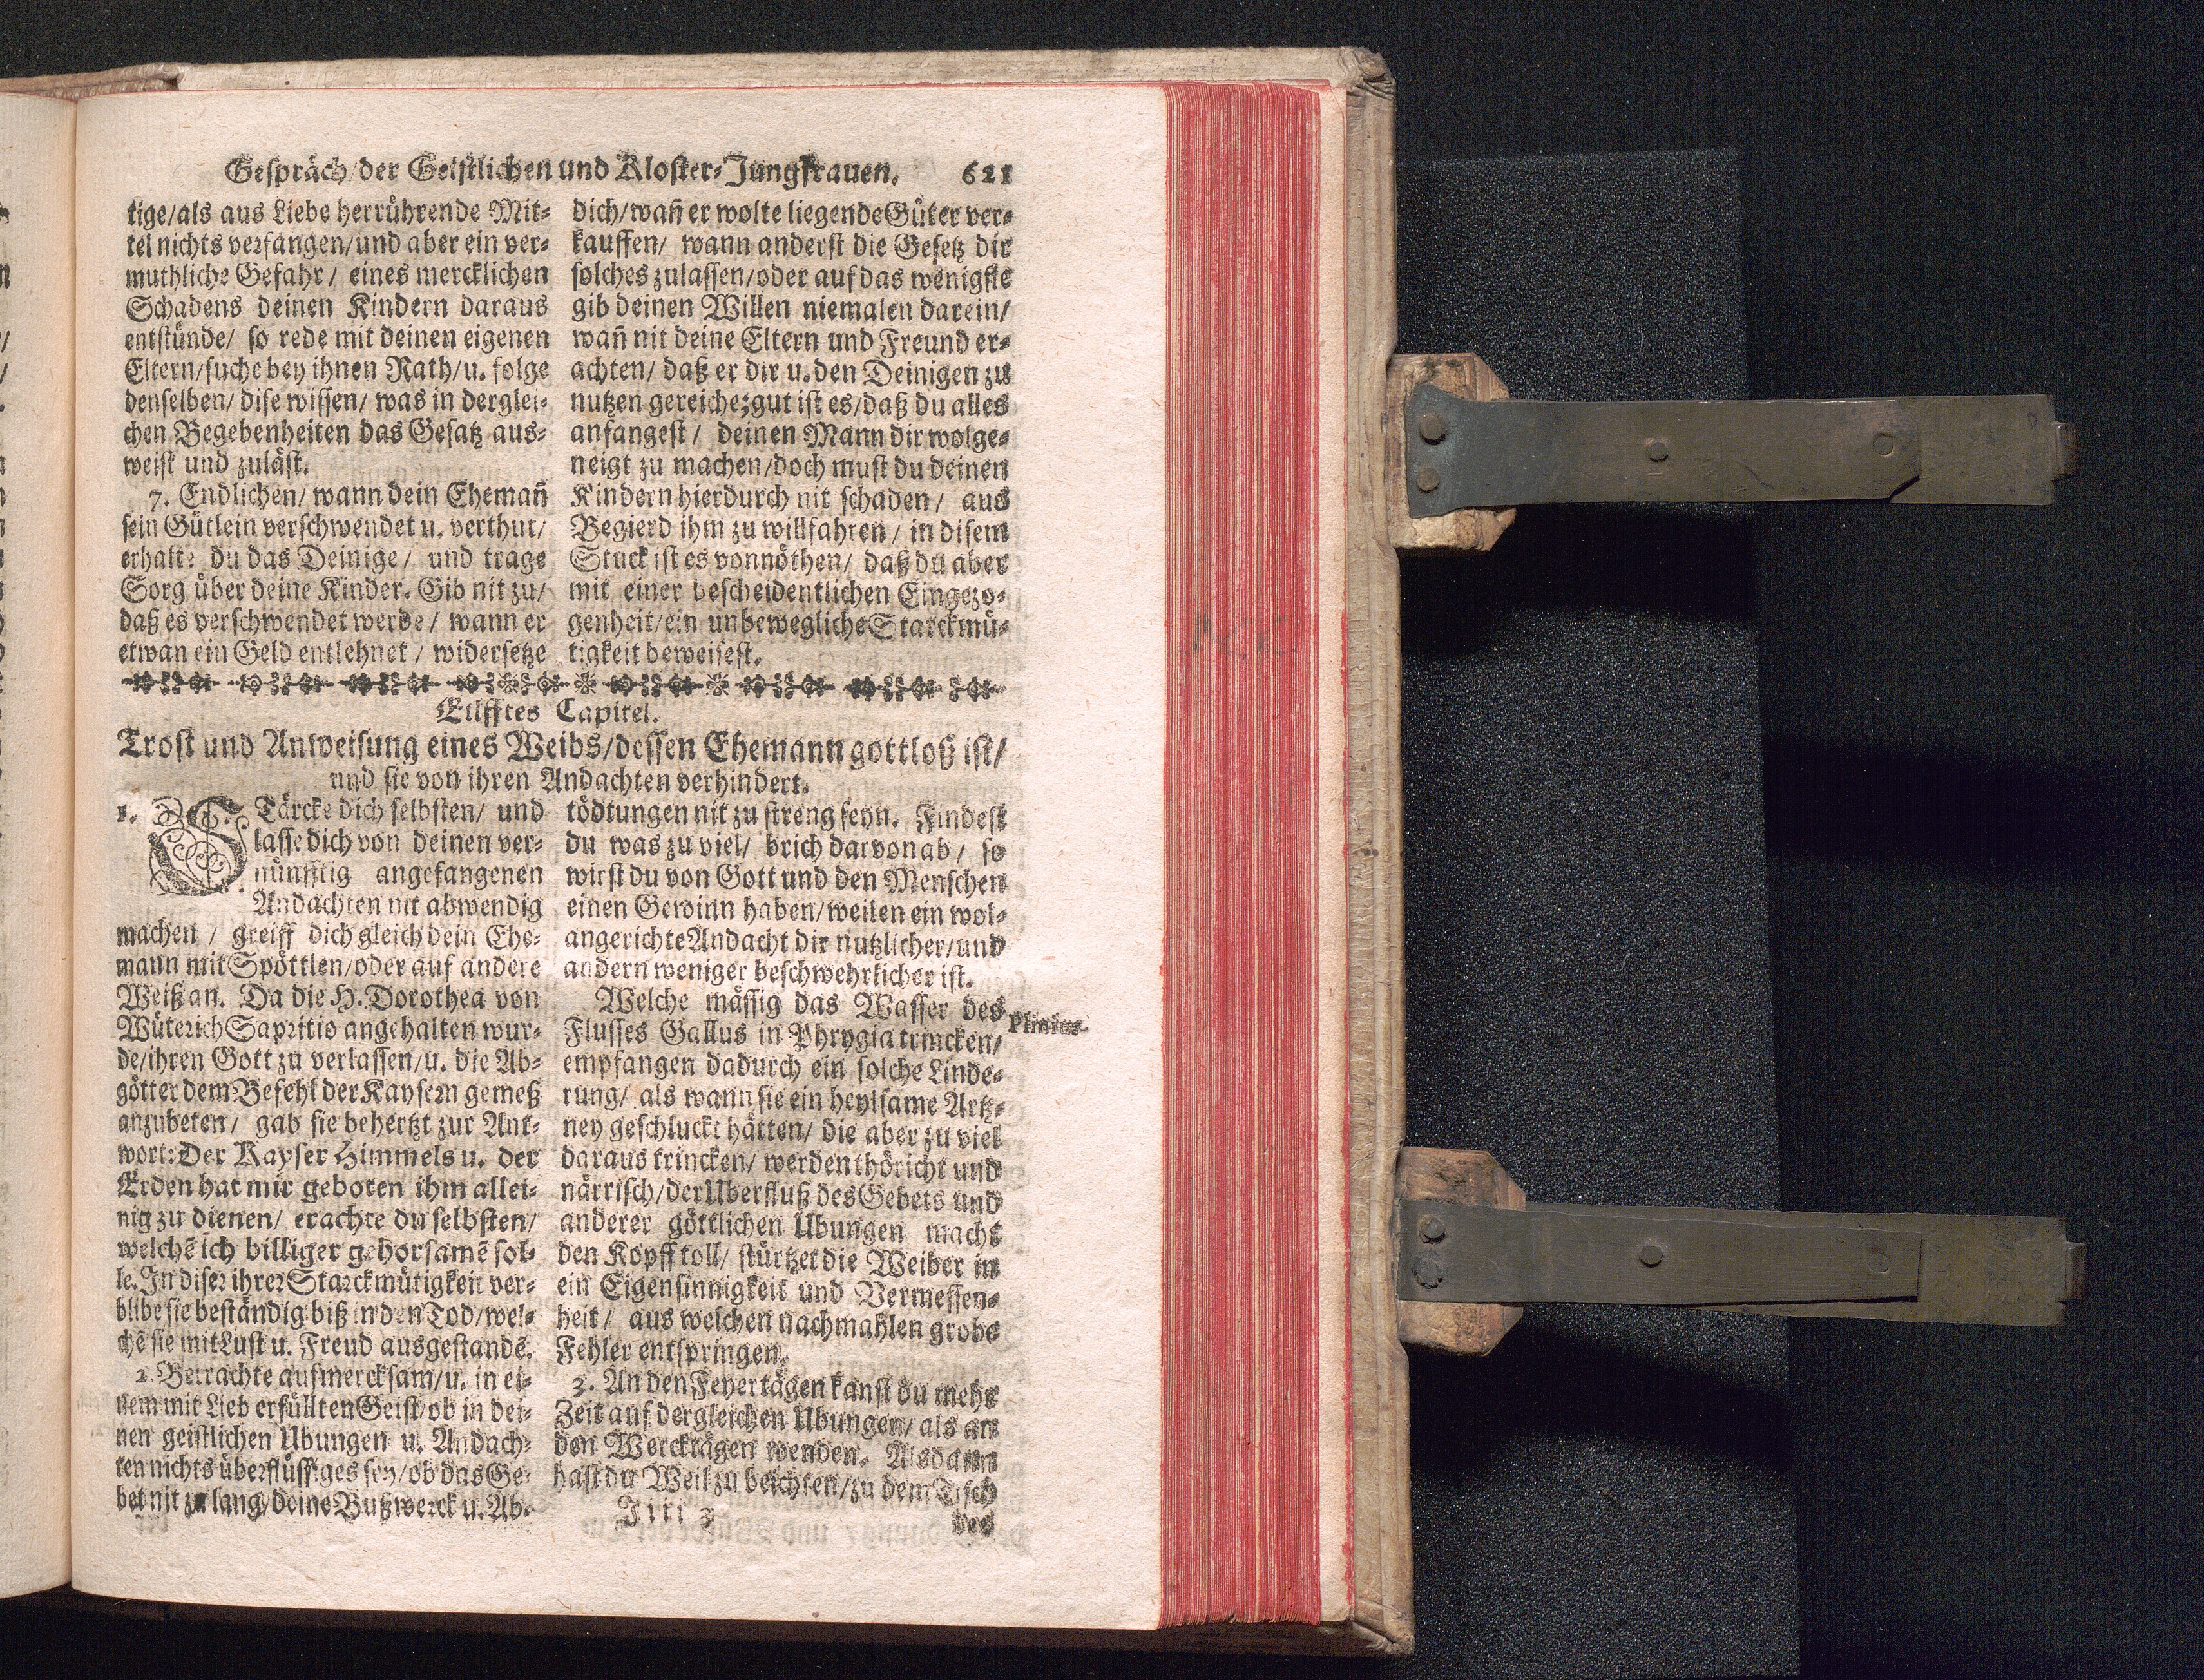 Gespräch/der Geistlichen und Kloster-Jungfrauen. 621
tige/als aus Liebe herrührende Mit-
tel nichts verfangen/und aber ein ver-
muthliche Gefahr/ eines mercklichen
Schadens deinen Kindern daraus
entstünde/ so rede mit deinen eigenen
Eltern/suche bey ihnen Rath/u. folge
denselben/ dise wissen/ was in derglei-
chen Begebenheiten das Gesatz aus-
weist und zuläst.
7. Endlichen/ wann dein Ehemañ
sein Gütlein verschwendet u. verthut/
erhalte du das Deinige/ und trage
Sorg über deine Kinder. Gib nit zu/
daß es verschwendet werde/ wann er
etwan ein Geld entlehnet/ widersetze
dich/wañ er wolte liegende Güter ver-
kauffen/ wann anderst die Gesetz dir
solches zulassen/oder auf das wenigste
gib deinen Willen niemalen darein/
wañ nit deine Eltern und Freund er-
achten/ daß er dir u. den Deinigen zu
nutzen gereiche; gut ist es/daß du alles
anfangest/ deinen Mann dir wolge-
neigt zu machen/doch must du deinen
Kindern hierdurch nit schaden/ aus
Begierd ihm zu willfahren/ in disem
Stuck ist es vonnöthen/ daß du aber
mit einer bescheidentlichen Eingezo-
genheit/ein unbewegliche Starckmü-
tigkeit beweisest.
Eilfftes Capitel.
Trost und Anweisung eines Weibs/dessen Ehemann gottloß ist/
und sie von ihren Andachten verhindert.
1. STärcke dich selbsten/ und
lasse dich von deinen ver-
nünfftig angefangenen
Andachten nit abwendig
machen/ greiff dich gleich dein Ehe-
mann mit Spöttlen/oder auf andere
Weiß an. Da die H. Dorothea von
Wüterich Sapritio angehalten wur-
de/ihren Gott zu verlassen/u. die Ab-
götter dem Befehl der Kaysern gemeß
anzubeten/ gab sie behertzt zur Ant-
wort: Der Kayser Himmels u. der
Erden hat mir geboten ihm allei-
nig zu dienen/ erachte du selbsten/
welchē ich billiger gehorsamē sol-
le. In diser ihrer Starckmütigkeit ver-
blibe sie beständig biß in den Tod/wel-
chē sie mit Lust u. Freud ausgestandē.
2. Betrachte aufmercksam/u. in ei-
nem mit Lieb erfüllten Geist/ob in dei-
nen geistlichen Übungen u. Andach-
ten nichts überflüssiges sey/ob das Ge-
bet nit zu lang/deine Bußwerck u. Ab-
tödtungen nit zu streng seyn. Findest
du was zu viel/ brich darvon ab/ so
wirst du von Gott und den Menschen
einen Gewinn haben/weilen ein wol-
angerichte Andacht dir nutzlicher/und
andern weniger beschwehrlicher ist.
Welche mässig das Wasser des
Flusses Gallus in Phrygia trincken/
empfangen dadurch ein solche Linde-
rung/ als wann sie ein heylsame Artz-
ney geschluckt hätten/ die aber zu viel
daraus trincken/ werden thöricht und
närrisch/der Überfluß des Gebets und
anderer göttlichen Übungen macht
den Kopff toll/ stürtzet die Weiber in
ein Eigensinnigkeit und Vermessen-
heit/ aus welchen nachmahlen grobe
Fehler entspringen.
3. An den Feyertägen kanst du mehr
Zeit auf dergleichen Übungen/ als an
den Wercktägen wenden. Alsdann
hast du Weil zu beichten/zu dem Tisch
Plinius.
Iiii 3
des